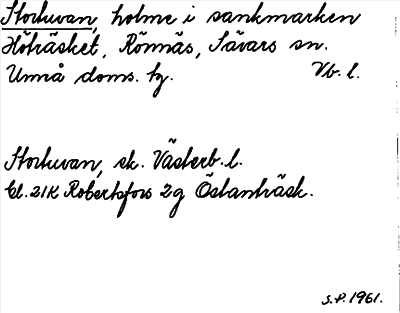 Stortuvan, holme i sankmarken
Höträsket, Rönnäs, Sävars sn.
Umeå doms. hg. Vb. l.
Stortuvan, ek. Västerb. l.
Bl. 21K Robertsfors 2g Östanträsk.
S.P. 1961.